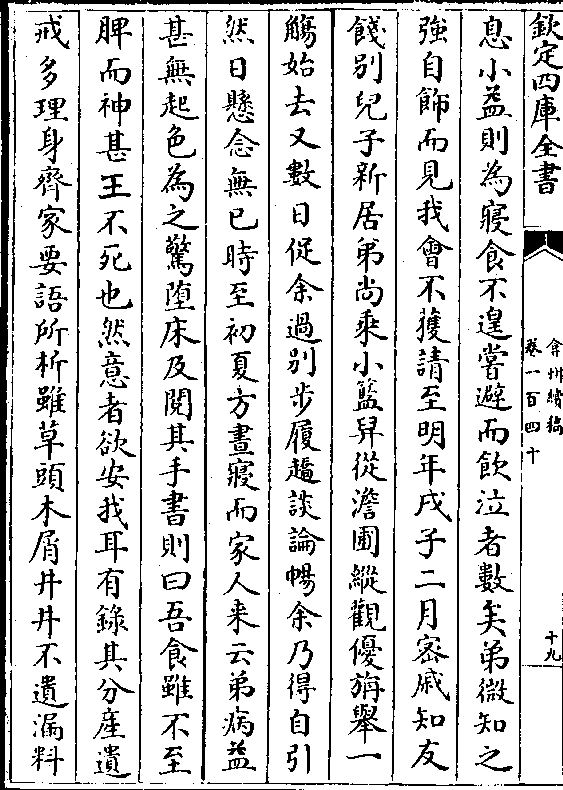 欽定四庫全書
弇州續稿
卷一百四十
十九
息小益則為寢食不遑嘗避而飲泣者數矣弟微知之
強自飾而見我會不獲請至明年戊子二月宻戚知友
餞别兒子新居弟尚乘小籃舁從澹圃縱觀優旃舉一
觴始去又數日促余過别步履趫談論暢余乃得自引
然日懸念無已時至初夏方晝寢而家人来云弟病益
甚無起色為之驚墮床及閱其手書則曰吾食雖不至
脾而神甚王不死也然意者欲安我耳有錄其分産遺
戒多理身齊家要語所析雖草頭木屑井井不遺漏料